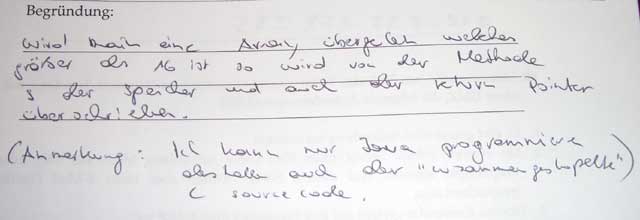 Begründung:
Wird main eine Array übergeben welches
größer als 16 ist so wird von der Methode
s der Speicher und auch der return Pointer
überschrieben.
(Anmerkung: Ich kann nur Java programmieren
deshalb auch der "zusammengestoppelte")
C source code.